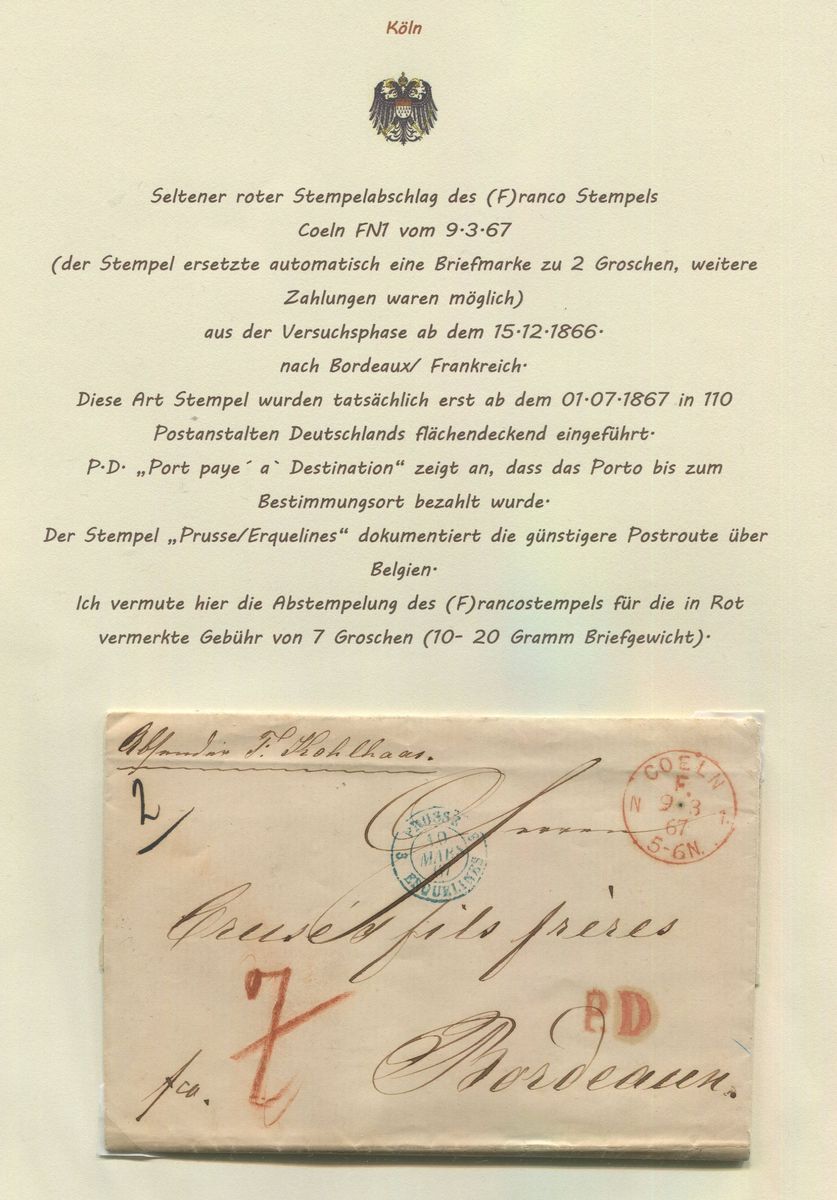 Köln
Seltener roter Stempelabschlag des (F)ranco Stempels
Coeln FN1 vom 9.3.67
(der Stempel ersetzte automatisch eine Briefmarke zu 2 Groschen, weitere
Zahlungen waren möglich)
aus der Versuchsphase ab dem 15.12.1866.
nach Bordeaux/ Frankreich.
Diese Art Stempel wurden tatsächlich erst ab dem 01.07.1867 in 110
Postanstalten Deutschlands flächendeckend eingeführt.
P.D. „Port paye´ a` Destination“ zeigt an, dass das Porto bis zum
Bestimmungsort bezahlt wurde.
Der Stempel „Prusse/Erquelines“ dokumentiert die günstigere Postroute über
Belgien.
Ich vermute hier die Abstempelung des (F)rancostempels für die in Rot
vermerkte Gebühr von 7 Groschen (10- 20 Gramm Briefgewicht).
Absender F. Kohlhaas.
2/
COELN
F.
N 9.3 1.
67
5-6N.
PRUSSE
3 10 3
MARS
67
ERQUELINES
Herren
Cruse & fils frères
7
P.D
fco.
Bordeaux.